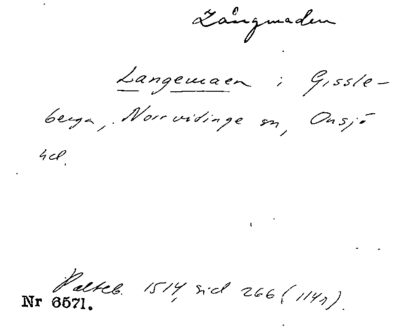 Långmaden
Langemaen i Gissle-
berga, Norrvidinge sn, Onsjö
hd.
Palteb. 1514, sid 266 (114r).
Nr 6571.